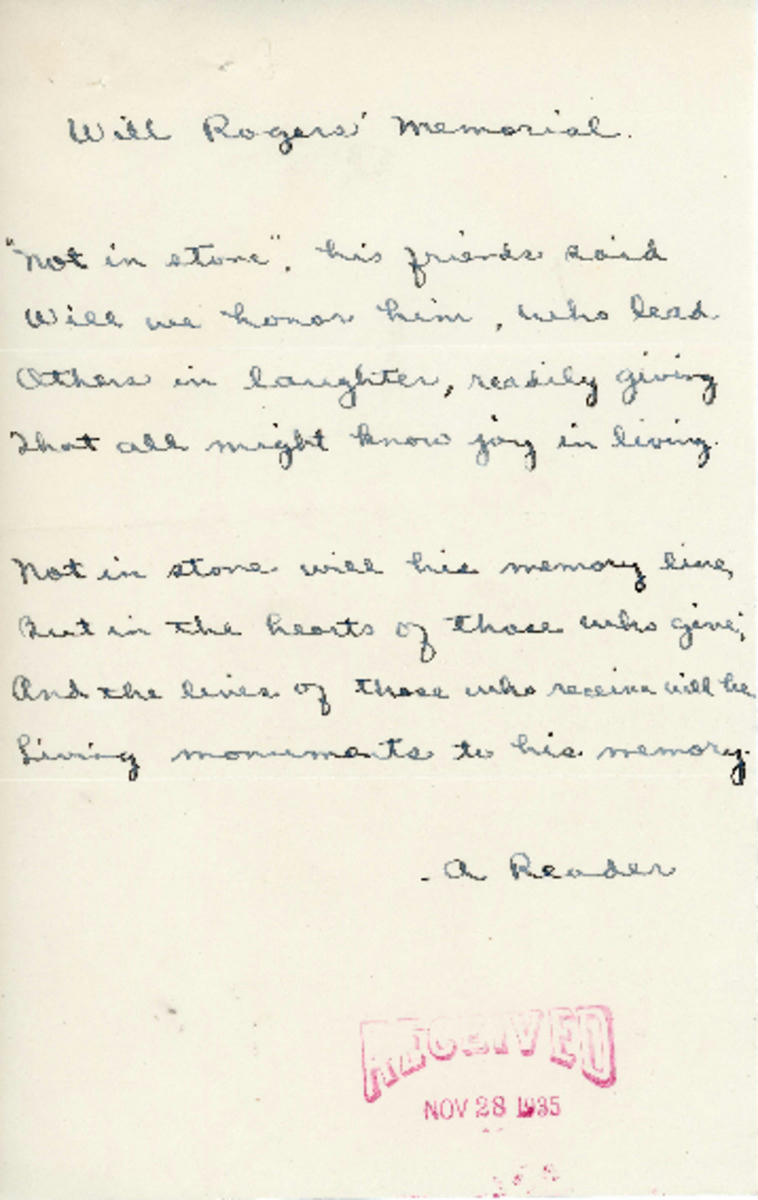 Will Rogers' Memorial.
"Not in stone", his friends said
Will we honor him, who lead
Others in laughter, readily giving
That all might know joy in living.
Not in stone will his memory live,
But in the hearts of those who give;
And the lives of those who receive will be
Living monuments to his memory.
- A Reader
RECEIVED
NOV 28 1935